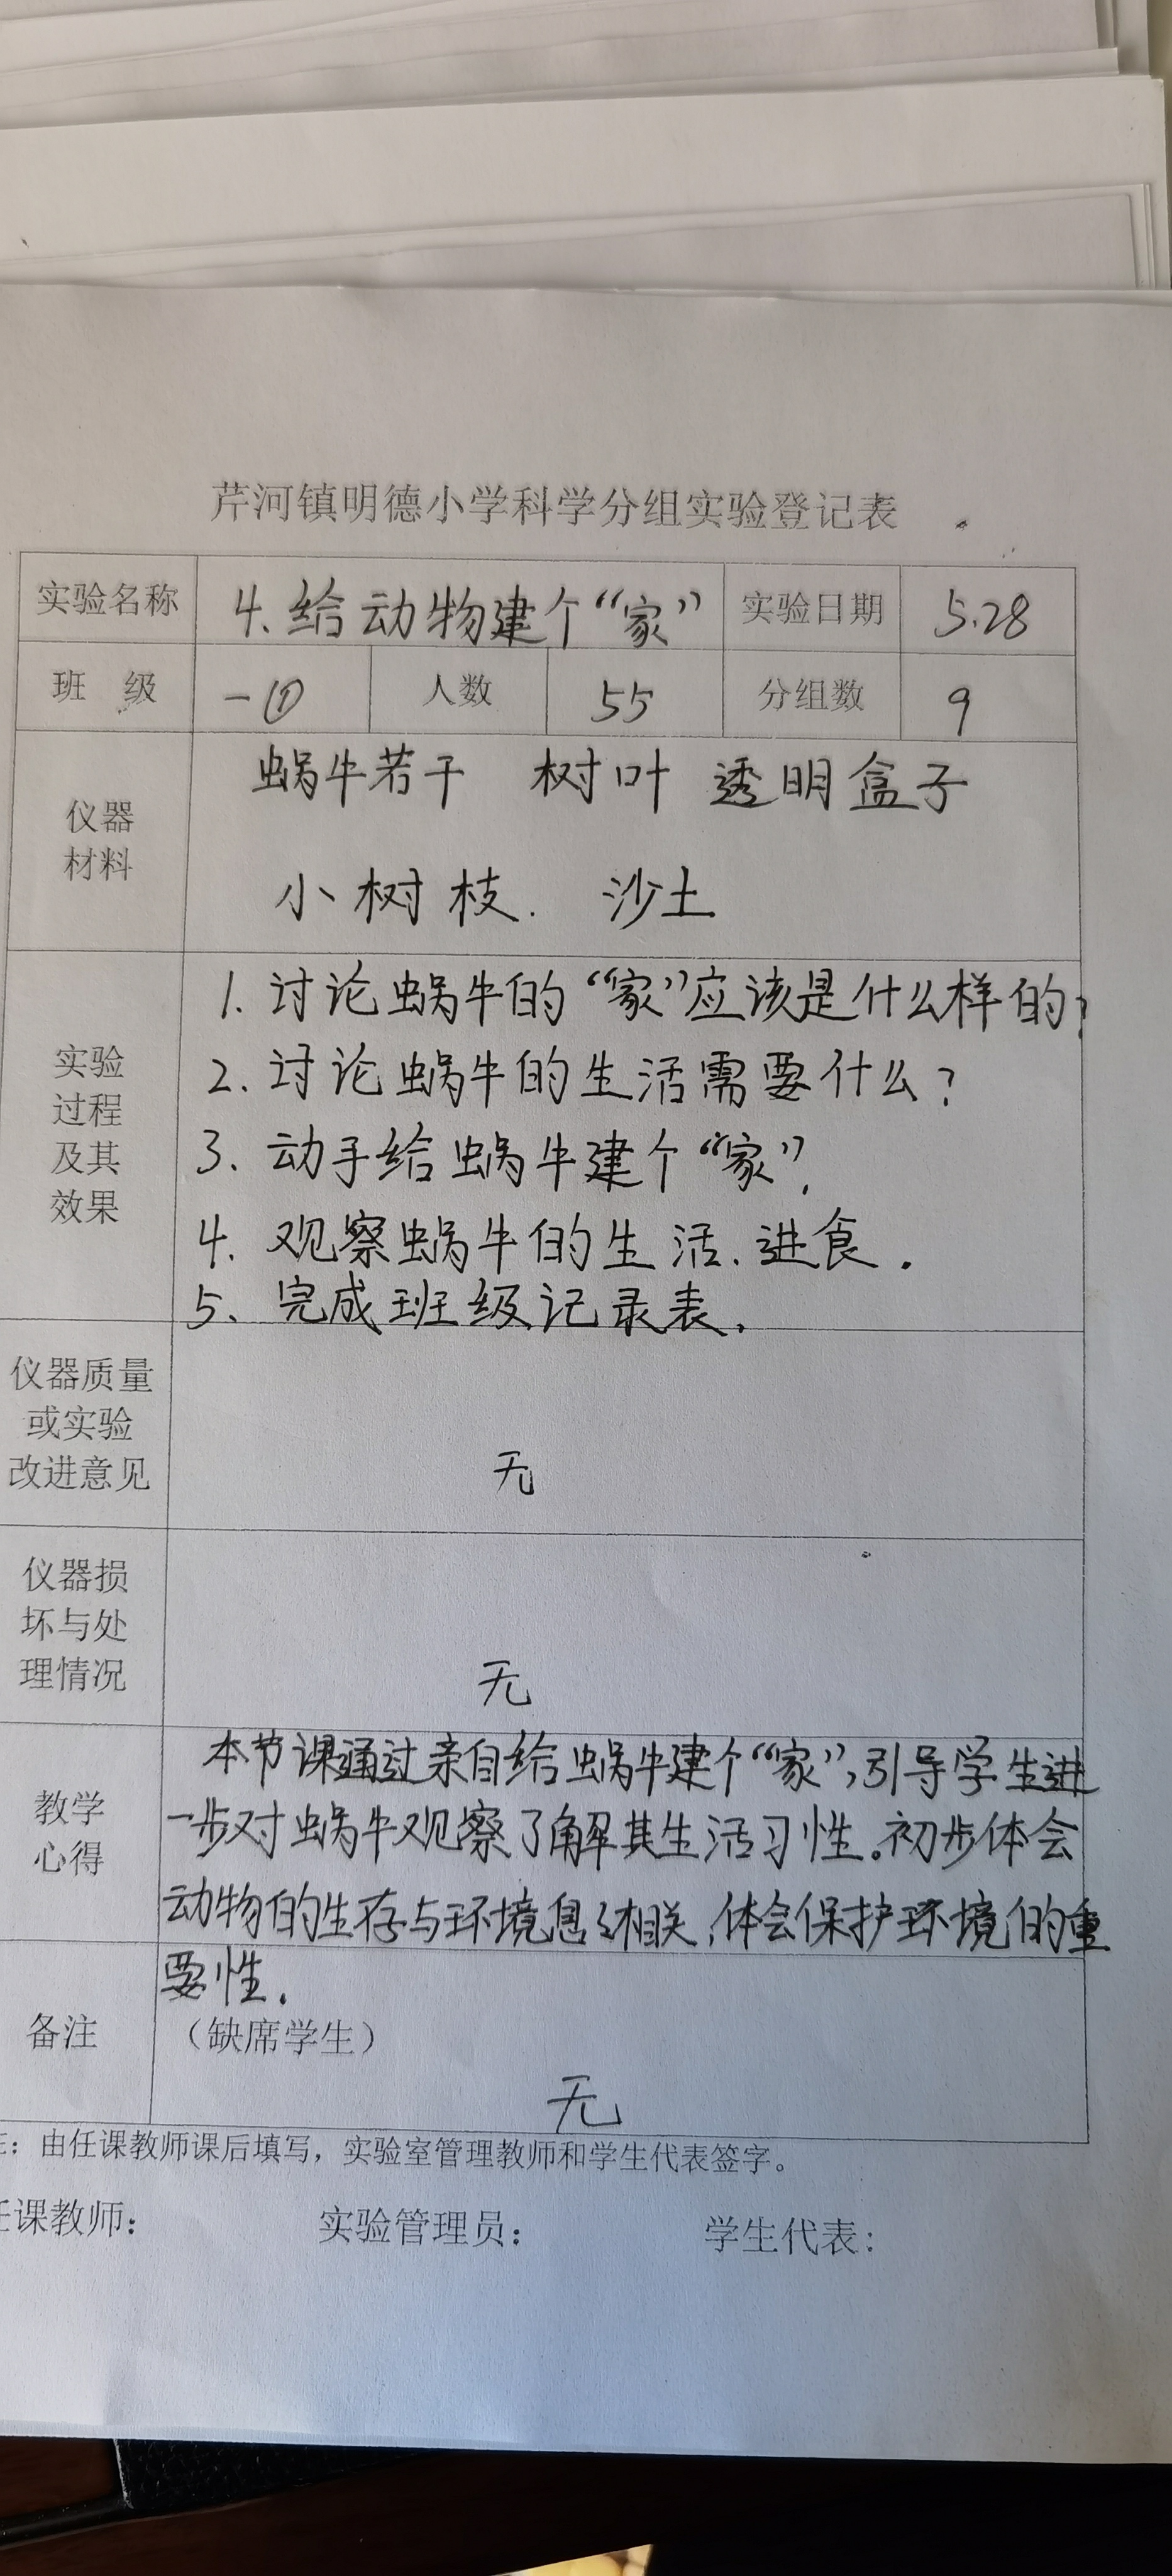 芹河镇明德小学科学分组实验登记表
实验名称 4.给动物建个“家” 实验日期 5.28
班 级 一① 人数 55 分组数 9
仪器
材料
蜗牛若干 树叶 透明盒子
小树枝. 沙土
实验
过程
及其
效果
1. 讨论蜗牛的“家”应该是什么样的?
2. 讨论蜗牛的生活需要什么?
3、动手给蜗牛建个“家”.
4. 观察蜗牛的生活、进食.
5、完成班级记录表.
仪器质量
或实验
改进意见
无
仪器损
坏与处
理情况
无
教学
心得
本节课通过亲自给蜗牛建个“家”,引导学生进
一步对蜗牛观察了解其生活习性。初步体会
动物的生存与环境息息相关,体会保护环境的重
要性.
备注
（缺席学生）
无
：由任课教师课后填写，实验室管理教师和学生代表签字。
任课教师： 实验管理员： 学生代表：